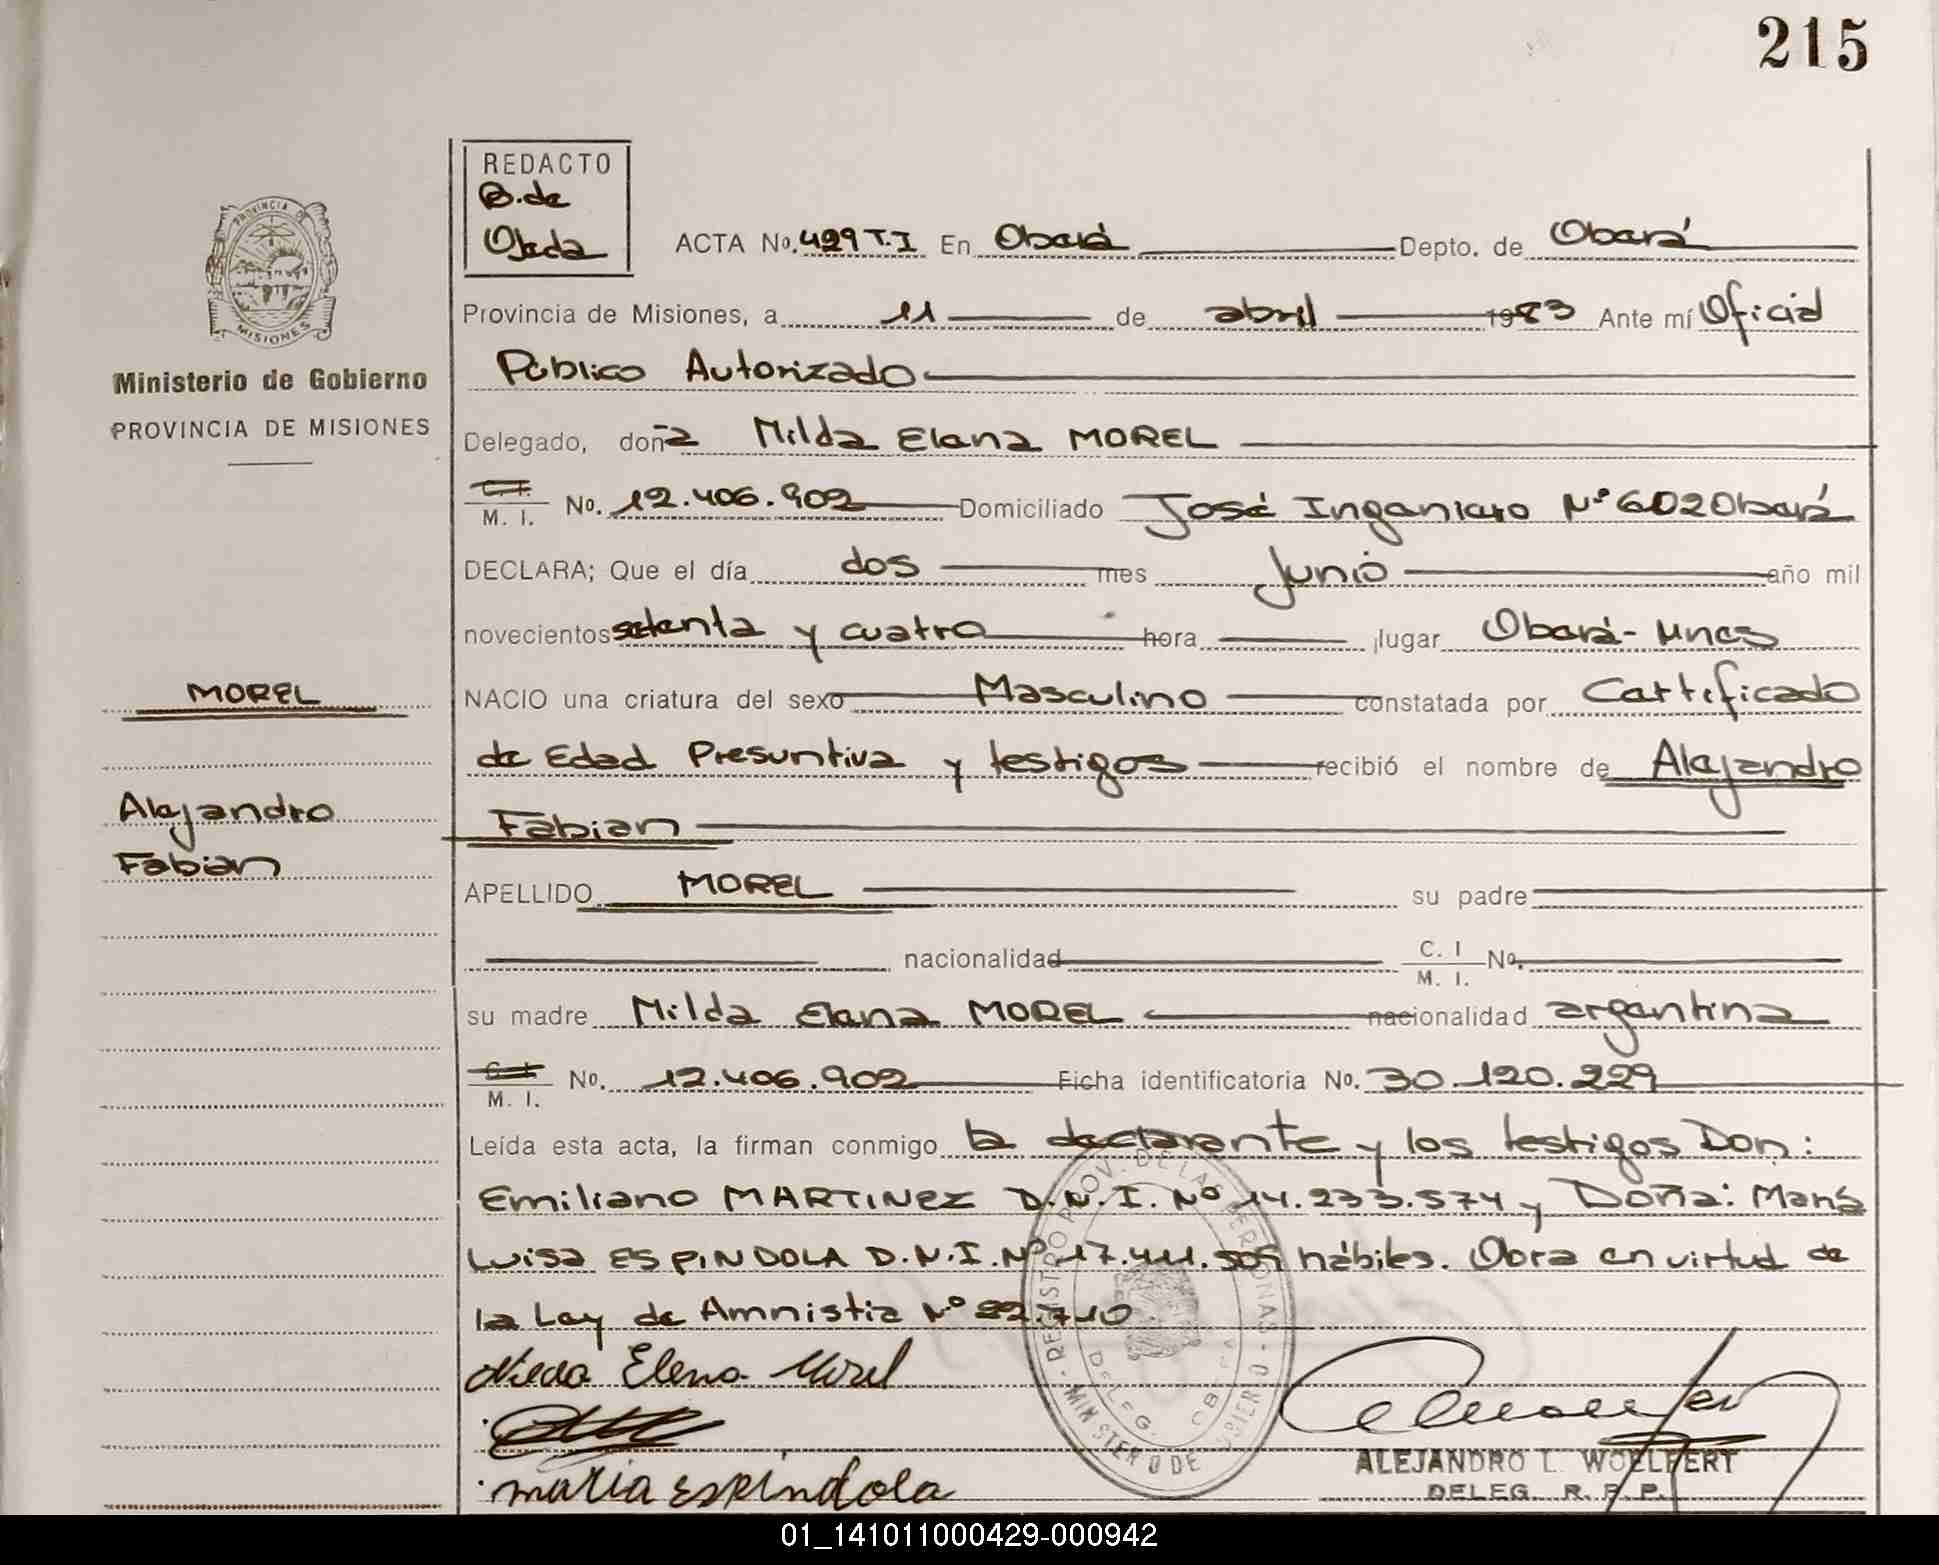 215
REDACTO
B. de
Ojeda
PROVINCIA DE
MISIONES
Ministerio de Gobierno
PROVINCIA DE MISIONES
ACTA No. 429 T.I En Oberá Depto. de Oberá
Provincia de Misiones, a 11 de abril 1983 Ante mí Oficial
Público Autorizado
Delegado, doña Nilda Elena MOREL
C. I.
M. I. No. 12.406.902 Domiciliado José Ingeniero Nº 602 Oberá
DECLARA; Que el día dos mes Junio año mil
novecientos setenta y cuatro hora lugar Oberá - Mnes
MOREL
NACIO una criatura del sexo Masculino constatada por Certificado
de Edad Presuntiva y testigos recibió el nombre de Alejandro
Alejandro
Fabian
Fabian
APELLIDO MOREL su padre
nacionalidad C. I
M. I. No.
su madre Nilda Elena MOREL nacionalidad argentina
C. I.
M. I. No. 12.406.902 Ficha identificatoria No. 30.120.229
Leída esta acta, la firman conmigo la declarante y los testigos Don:
Emiliano MARTINEZ D.N.I. Nº 14.233.574 y Doña: María
Luisa ESPINDOLA D.N.I. Nº 17.411.505 hábiles. Obra en virtud de
la Ley de Amnistia Nº 22.710
REGISTRO PROV. DE LAS PERSONAS
MINISTERIO DE GOBIERNO
DELEG. OBERA
Nilda Elena Morel
maria espindola
ALEJANDRO L. WOELFERT
DELEG. R. P. P.
01_141011000429-000942